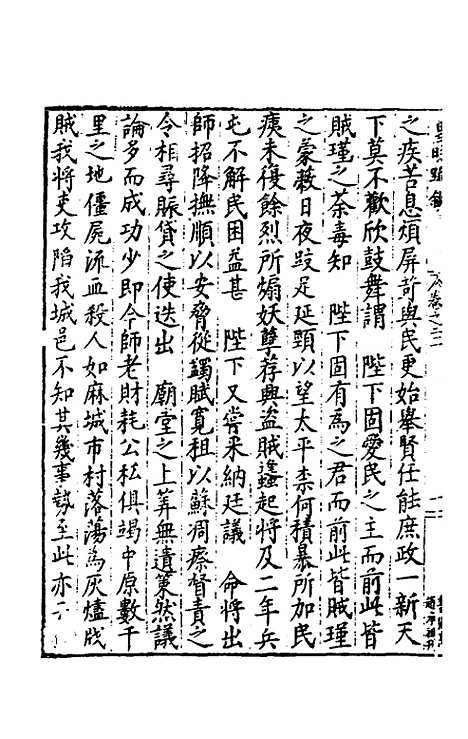 之疾苦息煩屏苛與民更始舉賢任能庶政一新天
下莫不歡欣鼓舞謂 陛下固愛民之主而前此皆
賊瑾之荼毒知 陛下固有為之君而前此皆賊瑾
之蒙蔽日夜跂足延頸以望太平柰何積暴所加民
痍未復餘烈所煽妖孽荐興盗賊蠭起將及二年兵
屯不解民困益甚 陛下又嘗采納廷議 命將出
師招降撫順以安脅從蠲賦寬租以蘇凋瘵督責之
令相尋賑貸之使迭出 廟堂之上筭無遺策然議
論多而成功少即今師老財耗公私俱竭中原數千
里之地僵屍流血殺人如麻城市村落蕩為灰燼戕
賊我將吏攻陷我城邑不知其幾事勢至此亦
卷之三